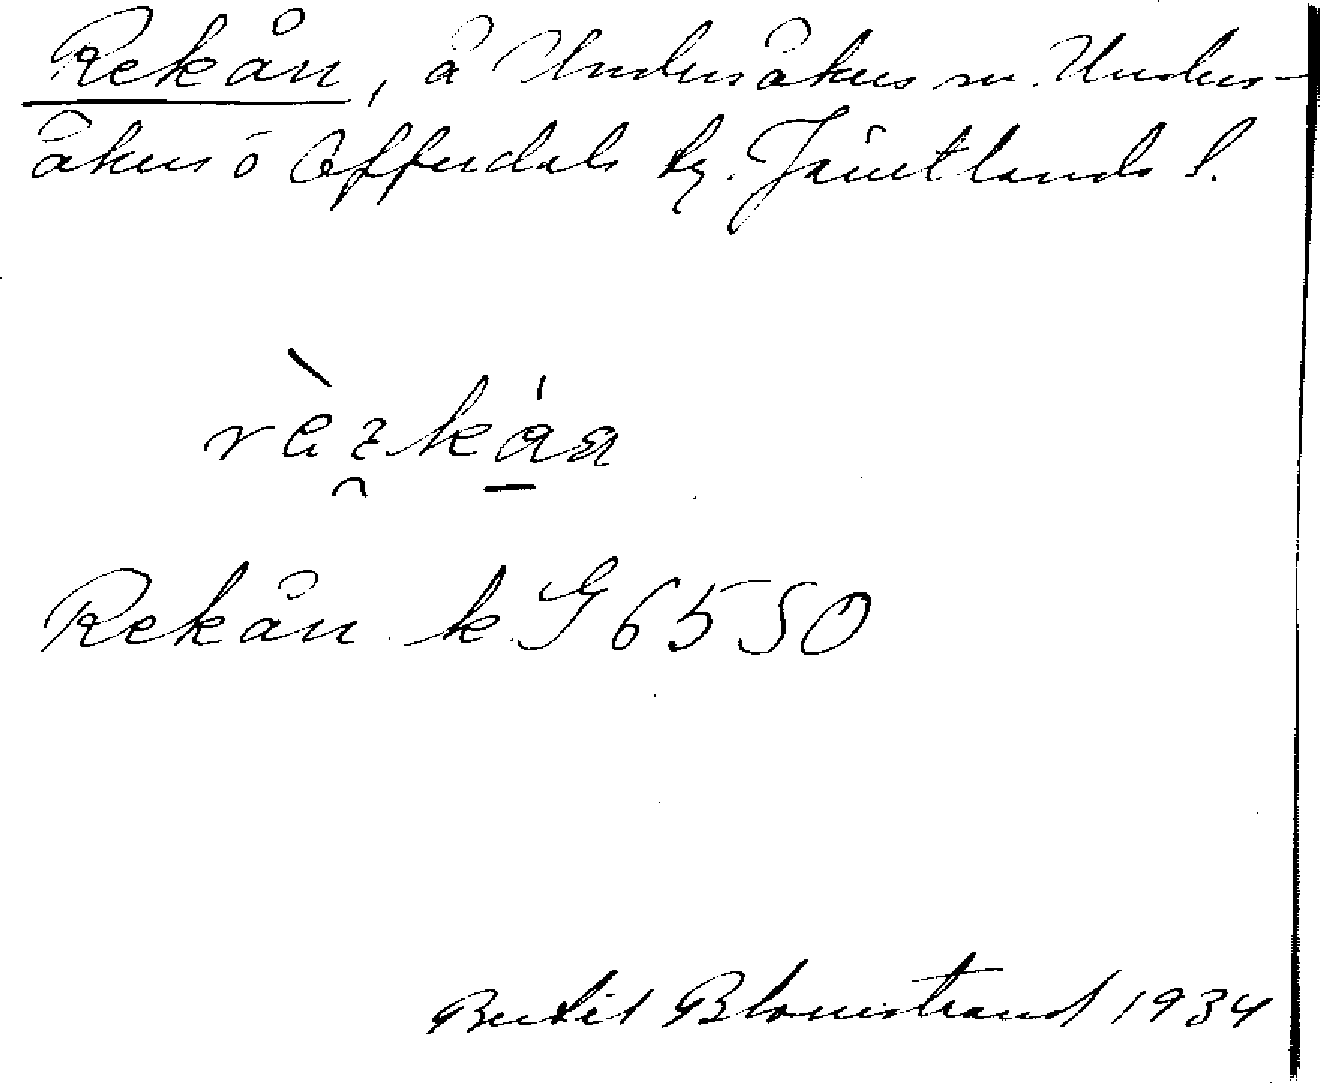 Rekån, å Undersåkers sn. Unders-
åkers o Offerdals tg. Jämtlands l.
Rekån k G 6550
Bertil Blomstrand 1934